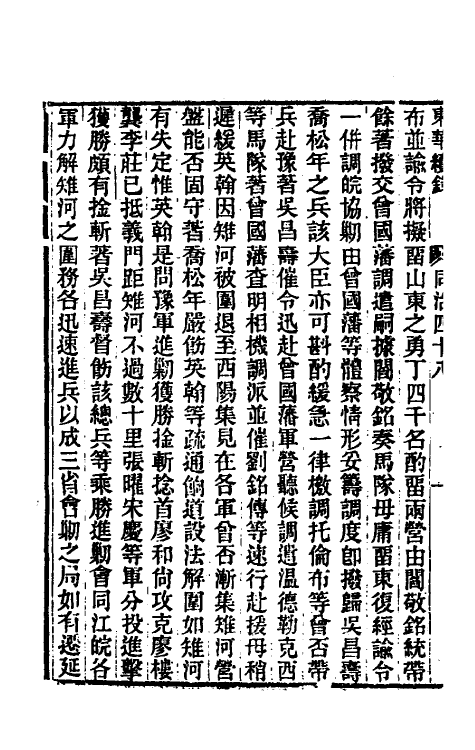 東華續錄 同治四十八 一
布並諭令將擬留山東之勇丁四千名酌留兩營由閻敬銘統帶
餘著撥交曾國藩調遣嗣據閻敬銘奏馬隊毋庸留東復經諭令
一併調皖協勦由曾國藩等體察情形妥籌調度卽撥歸吳昌壽
喬松年之兵該大臣亦可斟酌緩急一律檄調托倫布等曾否帶
兵赴豫著吳昌壽催令迅赴曾國藩軍營聽候調遣溫德勒克西
等馬隊著曾國藩查明相機調派並催劉銘傳等速行赴援毋稍
遲緩英翰因雉河被圍退至西陽集見在各軍曾否漸集雉河營
盤能否固守著喬松年嚴飭英翰等疏通餉道設法解圍如雉河
有失定惟英翰是問豫軍進勦獲勝擒斬捻首廖和尙攻克廖樓
龔李莊已抵義門距雉河不過數十里張曜宋慶等軍分投進擊
獲勝頗有擒斬著吳昌壽督飭該總兵等乘勝進勦會同江皖各
軍力解雉河之圍務各迅速進兵以成三省會勦之局如有遷延